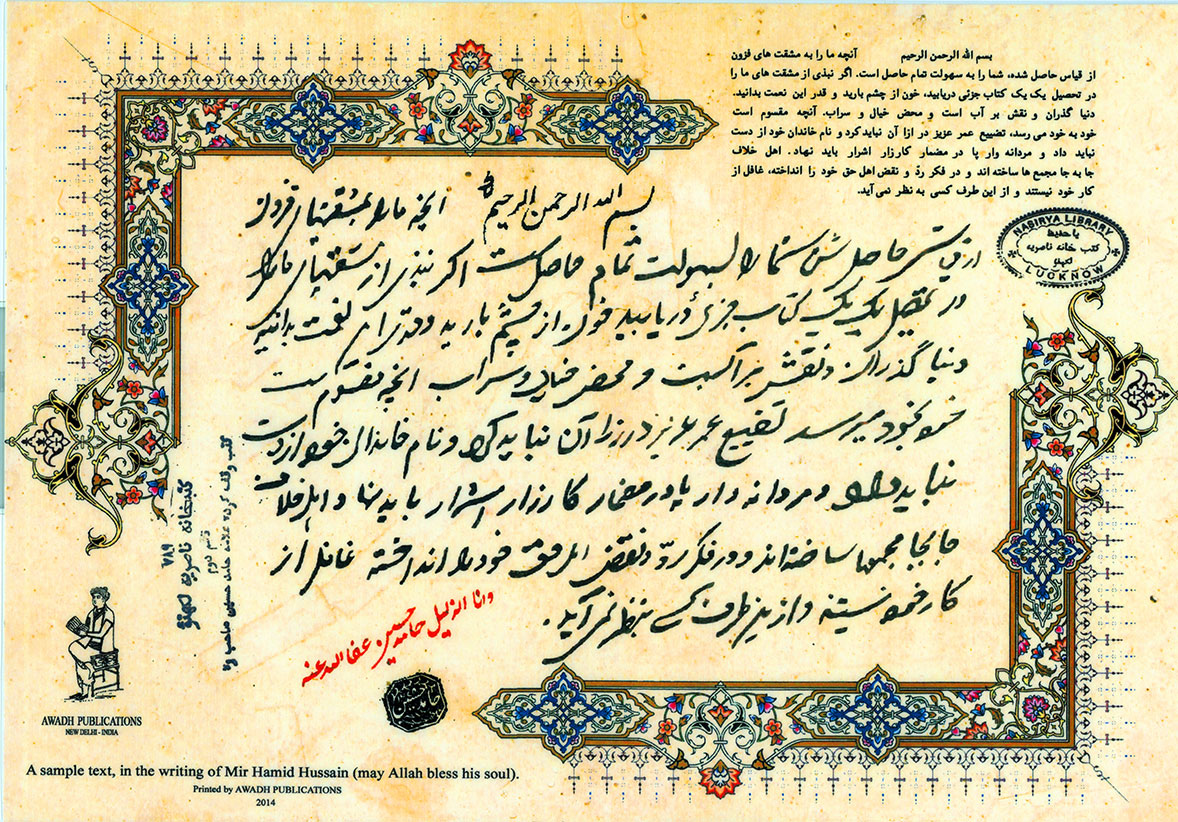 بسم الله الرحمن الرحیم آنچه ما را به مشقت های فزون
از قیاس حاصل شده، شما را به سهولت تمام حاصل است. اگر نبذی از مشقت های ما را
در تحصیل یک یک کتاب جزئی دریابید، خون از چشم بارید و قدر این نعمت بدانید.
دنیا گذران و نقش بر آب است و محض خیال و سراب. آنچه مقسوم است
خود به خود می رسد، تضییع عمر عزیز در ازا آن نباید کرد و نام خاندان خود از دست
نباید داد و مردانه وار پا در مضمار کارزار اشرار باید نهاد. اهل خلاف
جا به جا مجمع ها ساخته اند و در فکر ردّ و نقض اهل حق خود را انداخته، غافل از
کار خود نیستند و از این طرف کسی به نظر نمی آید.
بسم الله الرحمن الرحیم انچه ما را بمشقتهای فزون
از قیاس حاصل شده شما را بسهولت تمام حاصل است اگر نبذی از مشقتهای ما را
در تحصیل یک یک کتاب جزئی دریابید خون از چشم بارید و قدر این نعمت بدانید
دنیا گذران و نقش بر آبست و محض خیال و سراب انچه مقسوم است
خود بخود میرسد تضییع عمر عزیز در ازا آن نباید کرد و نام خاندان خود از دست
نباید داد و مردانه وار پا در مضمار کارزار اشرار باید نهاد و اهل خلاف
جابجا مجمعها ساخته اند و در فکر ردّ و نقض اهل حق خود را انداخته غافل از
کار خود نیستند و از ین طرف کسے بنظر نمی آید.
وانا الذلیل حامد حسین عفا الله عنه
NASIRYA LIBRARY
یا حفیظ
کتب خانه ناصریه
لکهنو
LUCKNOW
کتب وقف کرده علامه حامد حسین صاحب
قسم دوم
کتبخانه ناصریه لکهنؤ
۷۸۹
AWADH PUBLICATIONS
NEW DELHI - INDIA
A sample text, in the writing of Mir Hamid Hussain (may Allah bless his soul).
Printed by AWADH PUBLICATIONS
2014